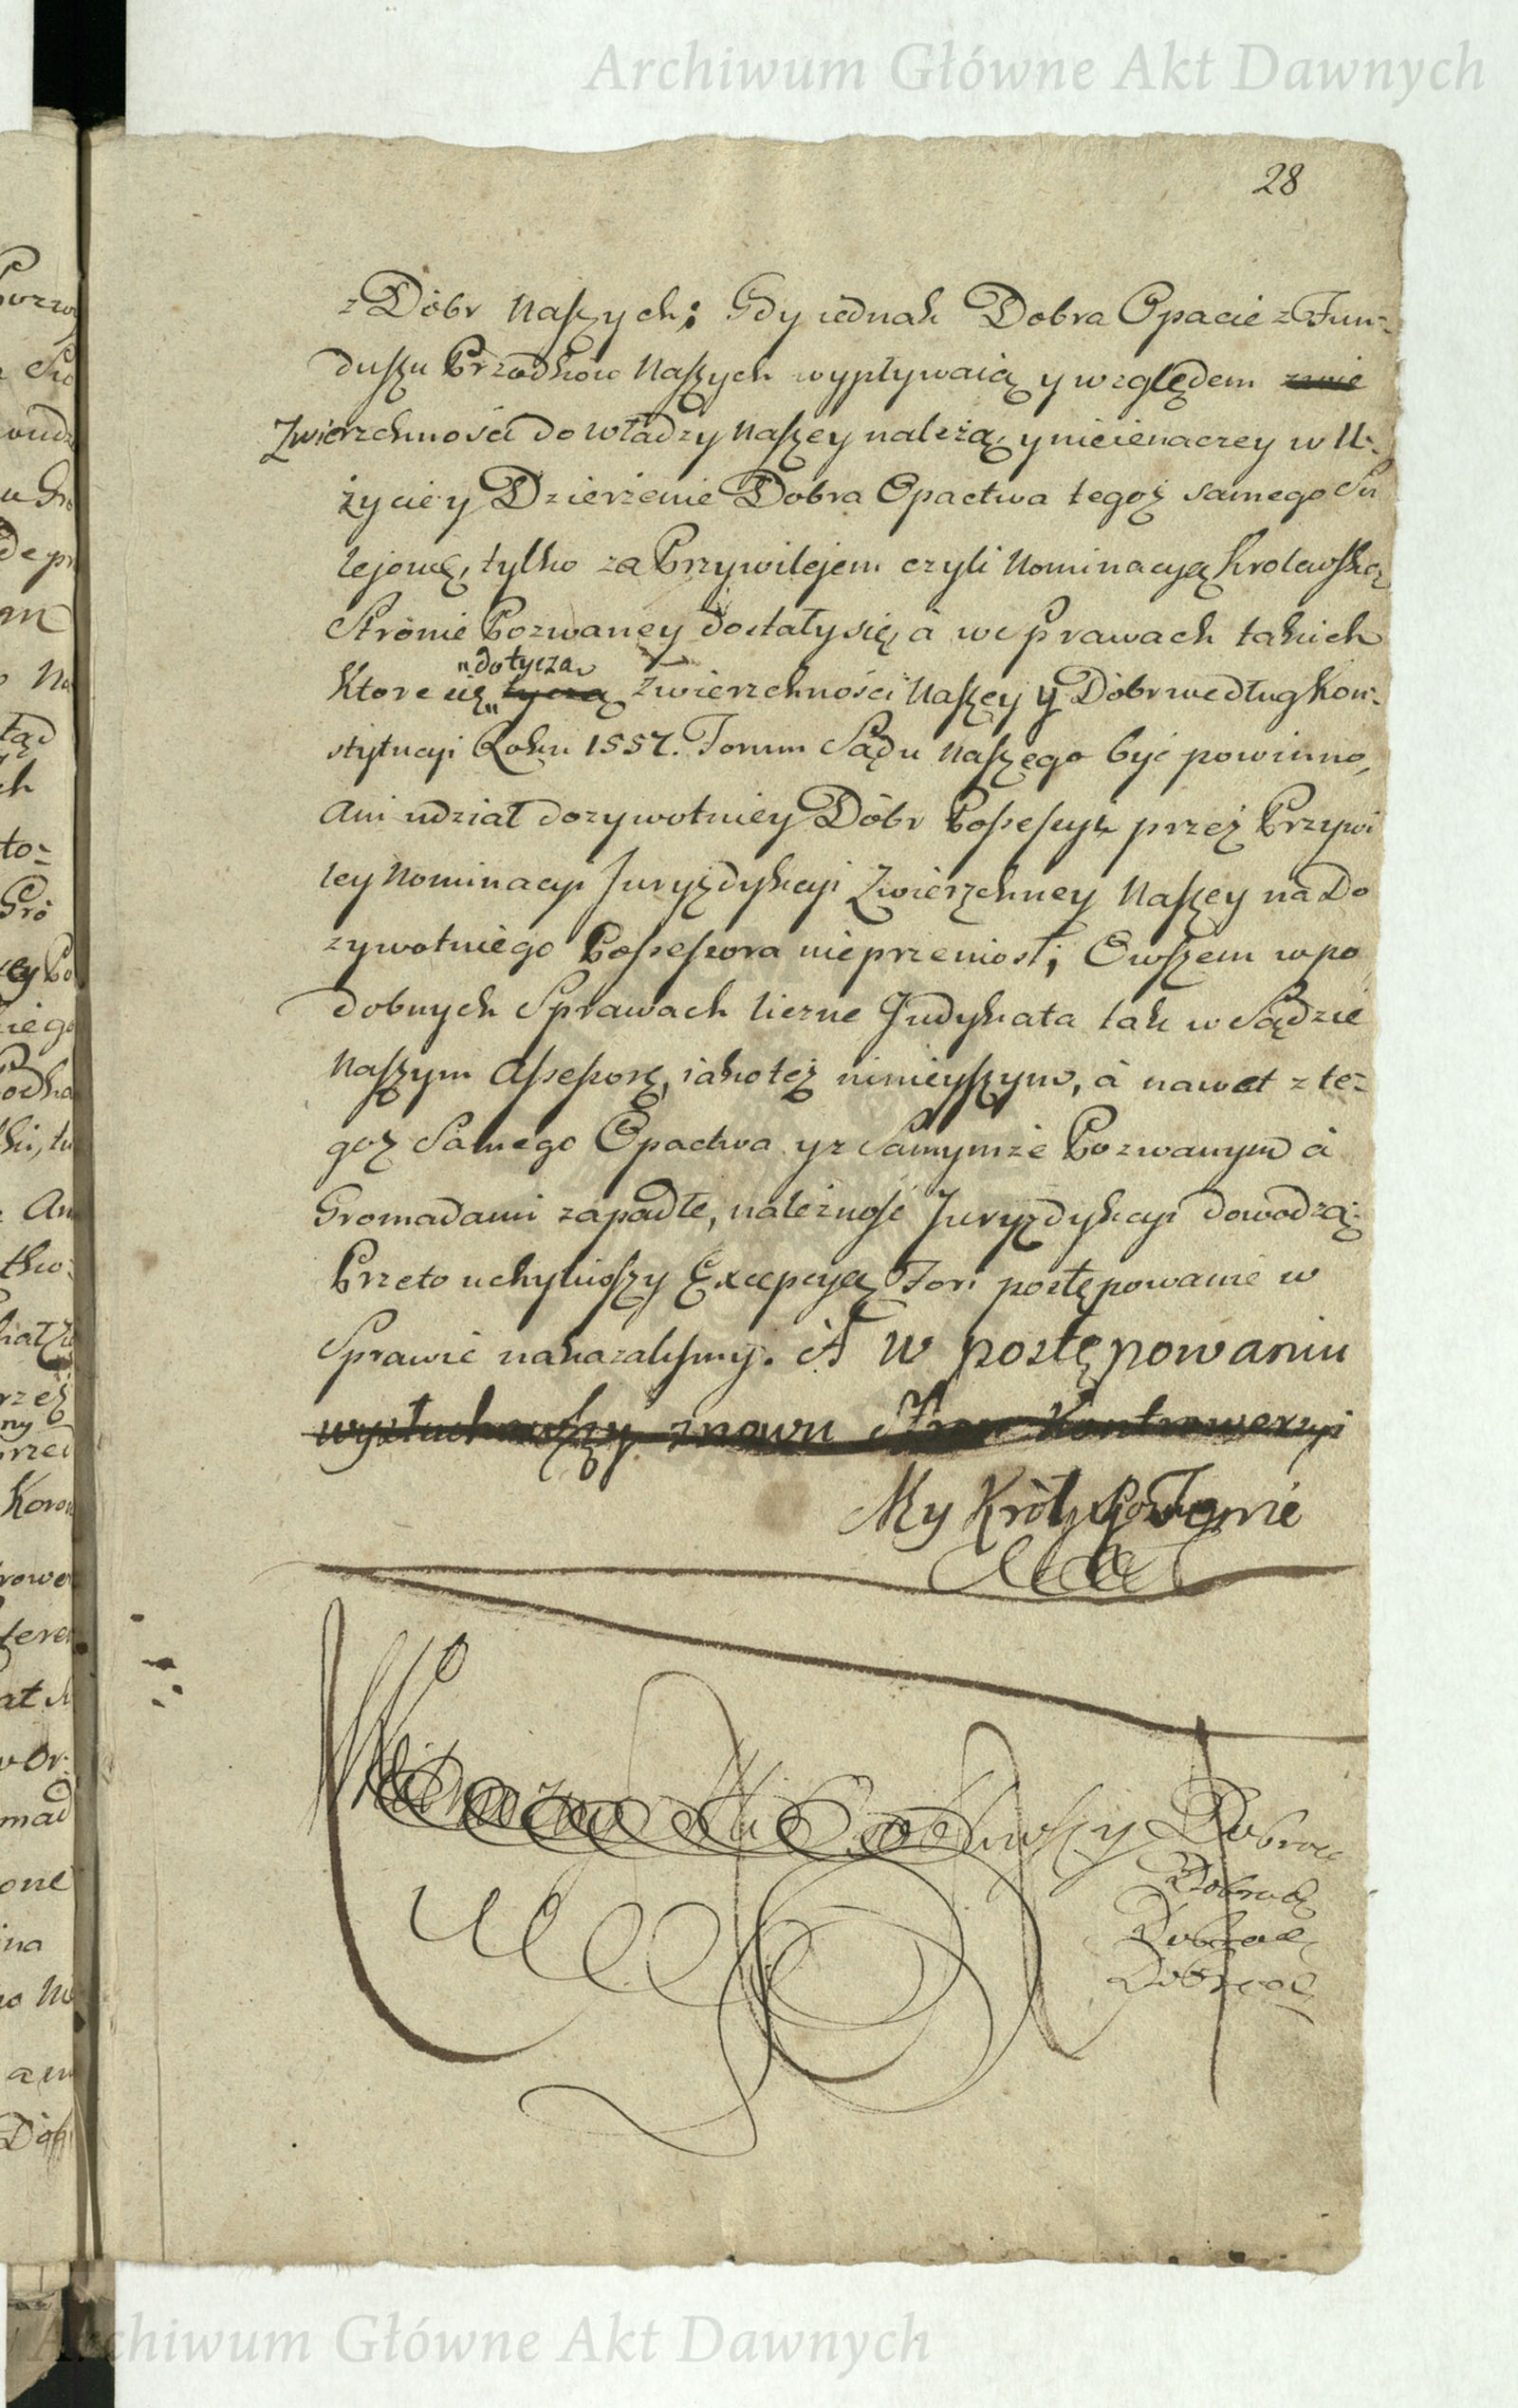 Archiwum Główne Akt Dawnych
28
z Dóbr Naszych; Gdy iednak Dobra Opacie z Fun-
duszu Przodkow Naszych wypływaią y względem zwie
Zwierzchności do władzy Naszey należą, y nieienaczey w U-
życie y Dzierżenie Dobra Opactwa tegoż samego Su
lejowę, tylko za Przywilejem czyli Nominacyą Krolewską
Strónie Pozwaney dostały się, á we prawach takich
"dotycza
Ktore się tyczą Zwierzchności Naszey y Dóbr według Kon-
stytucyi Roku 1557. Forum Sądu Naszego być powinno,
Ani udział dozywotniey Dóbr Possessyi przez Przywi
ley Nominacyi Juryzdykcyi Zwierzchney Naszey na Do
zywotniego Possessora nieprzeniosł; Owszem w po
dobnych Sprawach liczne Judykata tak w Sądzie
Naszym Assessorę, iako też ninieyszym, á nawet z te-
goz Samego Opactwa y z Samymże Pozwanym á
Gromadami zapadłe, należność Juryzdykcyi dowodzą:
Przeto uchyliwszy Excepcyą Fori postępowanie w
Sprawie nakazalismy. A w postępowaniu
wysłuchawszy znowu Stron Kontrowersyi
My Król
Dobrod
Dobrode
Dobrode
Archiwum Główne Akt Dawnych